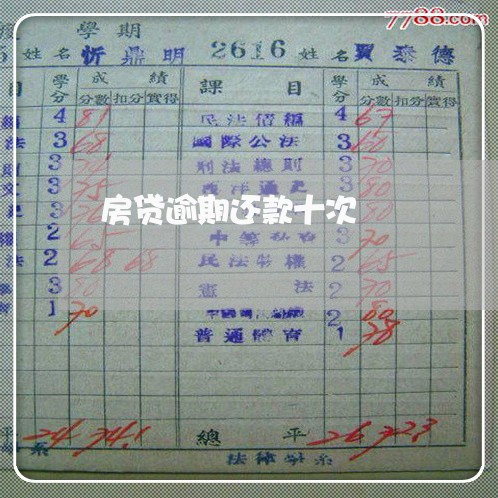 7788.com
學期
姓名 忻鼎明 2616 姓名 賈泰德
目 學分 成績 課目 學分 成績
分數 扣分 實得 分數 扣分 實得
4 81 民法債編 4 67
法 3 68 國際公法 3 60
3 刑法總則 3 70
3 75 西洋通史 3 80
房贷逾期还款十次
2 65 3 70
法 2 68 68 民法物權 2 65
3 80 憲法 2 70
1 70 2 80
普通體育 1 78
平 24 總平 26
系 法律學系